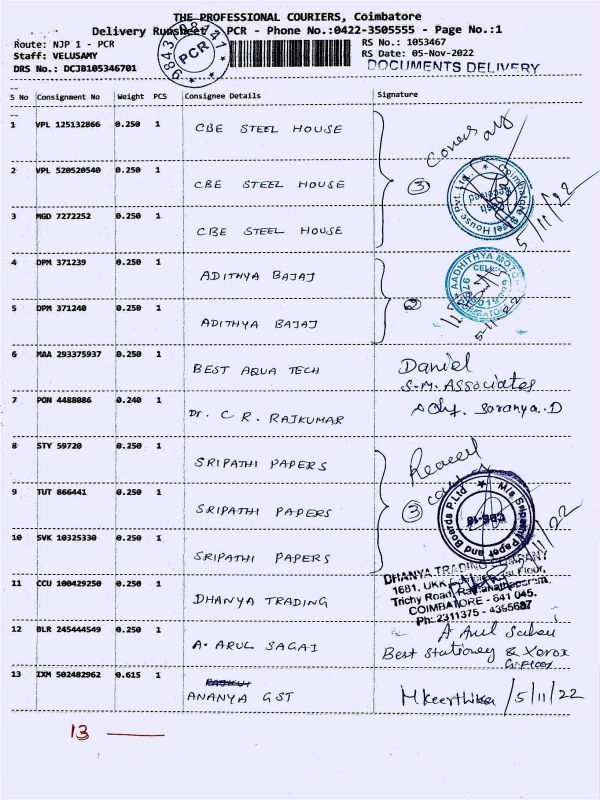 THE PROFESSIONAL COURIERS, Coimbatore
Delivery Runsheet - PCR - Phone No.:0422-3505555 - Page No.:1
Route: NJP 1 - PCR
RS No.: 1053467
Staff: VELUSAMY
RS Date: 05-Nov-2022
DRS No.: DCJB105346701
DOCUMENTS DELIVERY
PCR
S No Consignment No Weight PCS Consignee Details Signature
1 VPL 125132866 0.250 1 CBE STEEL HOUSE
2 VPL 520520540 0.250 1 CBE STEEL HOUSE
3 MGD 7272252 0.250 1 CBE STEEL HOUSE
③ Coimbatore Steel House Pvt. Ltd. Received
5/11/22
4 DPM 371239 0.250 1 ADITHYA BAJAJ
5 DPM 371240 0.250 1 ADITHYA BAJAJ
② AADHITHYA MOTO
5-11-22
6 MAA 293375937 0.250 1 BEST AQUA TECH Daniel
S.M. Associates
7 PON 4488086 0.240 1 Dr. C R. RAJKUMAR Soranya.D
8 STY 59720 0.250 1 SRIPATHI PAPERS
9 TUT 866441 0.250 1 SRIPATHI PAPERS
10 SVK 10325330 0.250 1 SRIPATHI PAPERS
③ M/s Sripathi Paper and Boards P.Ltd CBE-18
/11/22
11 CCU 100429250 0.250 1 DHANYA TRADING
DHANYA TRADING COMPANY
1681, UKK Floor,
Trichy Road, Ramanathapuram,
COIMBATORE - 641 045.
Ph: 2311375 - 4395687
12 BLR 245444549 0.250 1 A. ARUL SAGAI
Best Stationey & Xerox
13 IXM 502482962 0.615 1 ANANYA GST M Keerthika /5/11/22
13